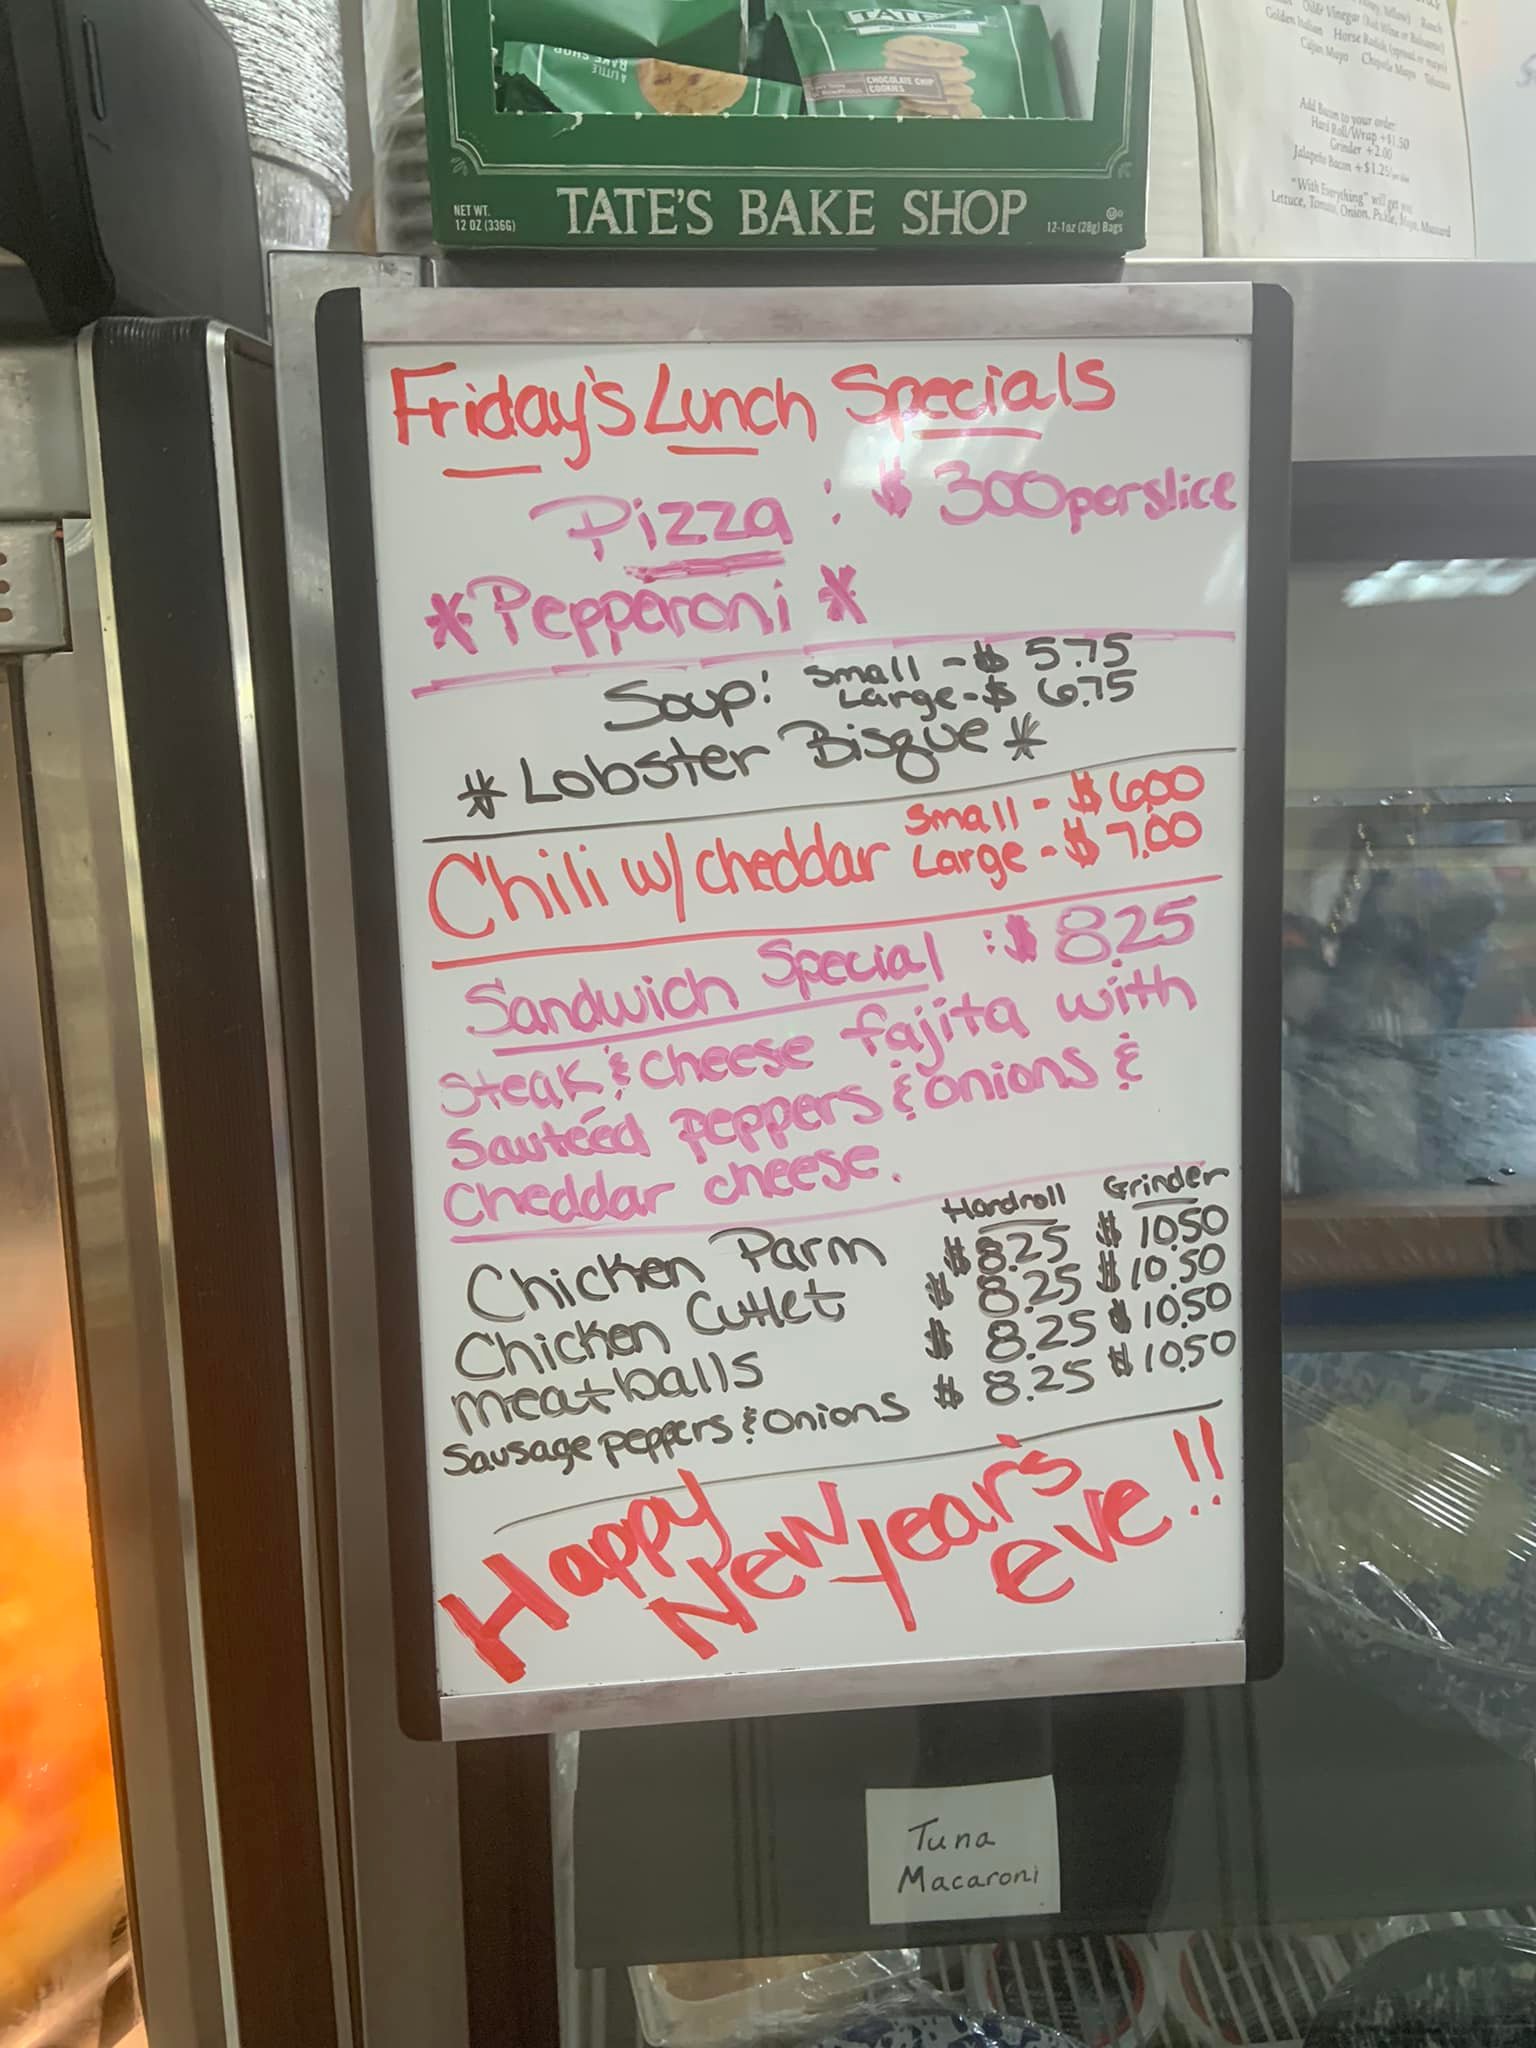 TATE'S
A LITTLE
BAKE SHOP
CHOCOLATE CHIP
COOKIES
NET WT.
12 OZ (336G)
TATE'S BAKE SHOP
12-1oz (28g) Bags
Ranch
Oil & Vinegar (Red Wine or Balsamic)
Golden Italian Horse Radish (optional or mayo)
Cajun Mayo Chipotle Mayo Tobasco
Add Bacon to your order:
Hard Roll/Wrap +$1.50
Grinder +2.00
Jalapeño Bacon +$1.25/
"With Everything" will get you
Lettuce, Tomato, Onion, Pickle, Mayo, Mustard
Friday's Lunch Specials
Pizza : $ 300 per slice
*Pepperoni*
Soup: Small - $ 5.75
Large - $ 6.75
*Lobster Bisque*
Chili w/ cheddar Small - $6.00
Large - $ 7.00
Sandwich Special : $ 8.25
Steak & cheese fajita with
sautéed peppers & onions &
cheddar cheese.
Hardroll Grinder
Chicken Parm $8.25 $ 10.50
Chicken Cutlet $ 8.25 $10.50
meatballs $ 8.25 $10.50
Sausage peppers & onions $ 8.25 $10.50
Happy
New Year's
eve!!
Tuna
Macaroni